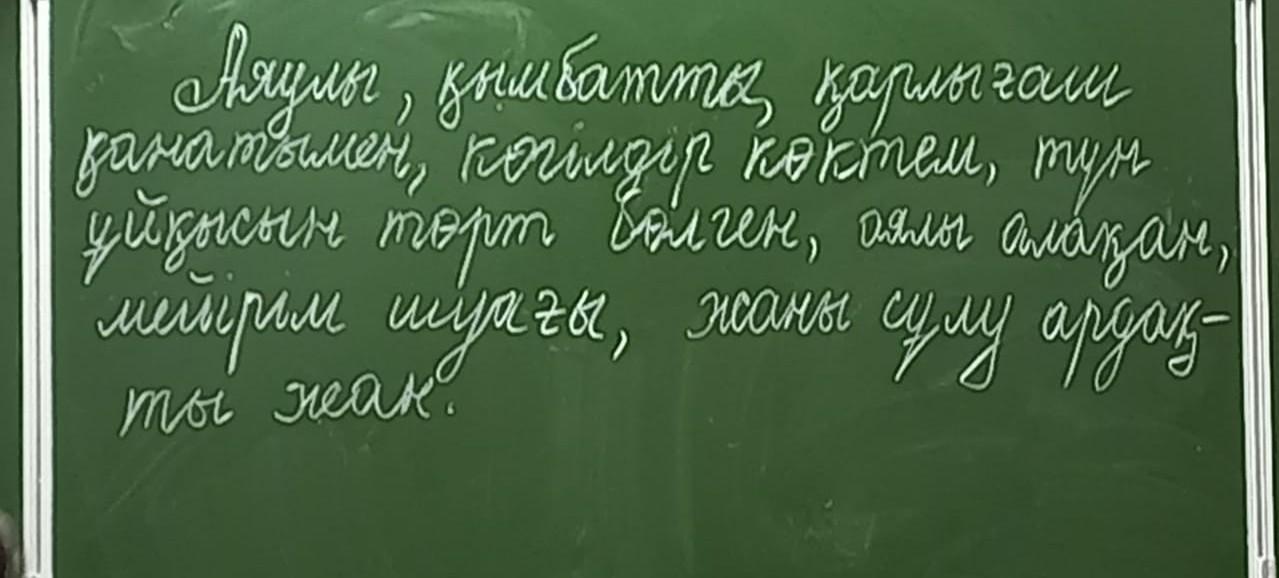 Аяулы, қымбатты, қарлығаш
қанатымен, көгілдір көктем, түн
ұйқысын төрт бөлген, аялы алақан,
мейірім шуағы, жаны сұлу ардақ-
ты жан.